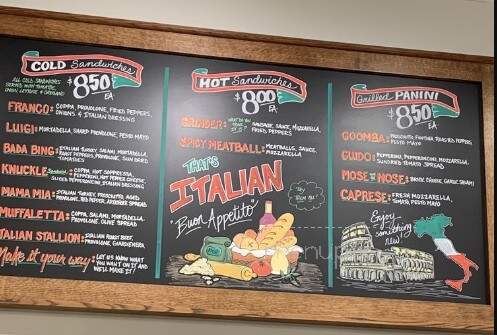 COLD Sandwiches
ALL COLD SANDWICHES
$8.50 EA.
FRANCO: COPPA, PROVOLONE, FRIED PEPPERS,
ONIONS & ITALIAN DRESSING
LUIGI: MORTADELLA, SHARP PROVOLONE, PESTO MAYO
BADA BING: ITALIAN TURKEY, SALAMI, MORTADELLA,
ROAST PEPPERS, PROVOLONE, SUN DRIED
TOMATOES
KNUCKLE Sandwich: COPPA, HOT SOPPRESSA,
PEPPERONI, HOT PEPPER
SLICED PEPPERONCINI, ITALIAN DRESSING
MAMA MIA: ITALIAN TURKEY, PROSCIUTTO, AGED
PROVOLONE, RED PEPPER, ARTICHOKE SPREAD
MUFFALETTA: COPPA, SALAMI, MORTADELLA,
PROVOLONE, OLIVE SPREAD
ITALIAN STALLION: ITALIAN ROAST BEEF,
PROVOLONE, GIARDINIERA
Make it your way: LET US KNOW WHAT
YOU WANT ON IT AND
WE'LL MAKE IT!
HOT Sandwiches
$8.00 EA.
GRINDER: SAUSAGE, SAUCE, MOZZARELLA,
FRIED PEPPERS
SPICY MEATBALL: MEATBALLS, SAUCE,
MOZZARELLA
THAT'S
ITALIAN
"Buon Appetito"
Grilled PANINI
$8.50 EA.
GOOMBA: PROSCIUTTO, FONTINA, ROASTED PEPPERS
PESTO MAYO
GUIDO: PEPPERONI, PEPPERONCINI, MOZZARELLA,
SUNDRIED TOMATO SPREAD
MOSE TO MOSE:
CAPRESE: FRESH MOZZARELLA,
TOMATO, PESTO MAYO
Enjoy
something
new!